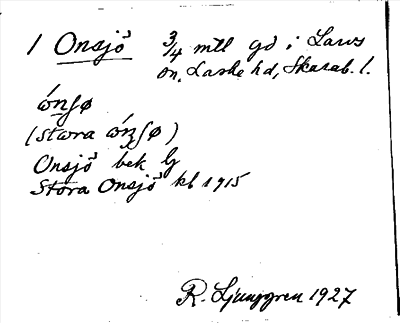 1 Onsjö 3/4 mtl gd i Larvs
sn, Laske hd, Skarab. l.
ɷ́nʃø
(stɷra ɷ́nʃø)
Onsjö bek G
Stora Onsjö kb 1915
R. Ljunggren 1927